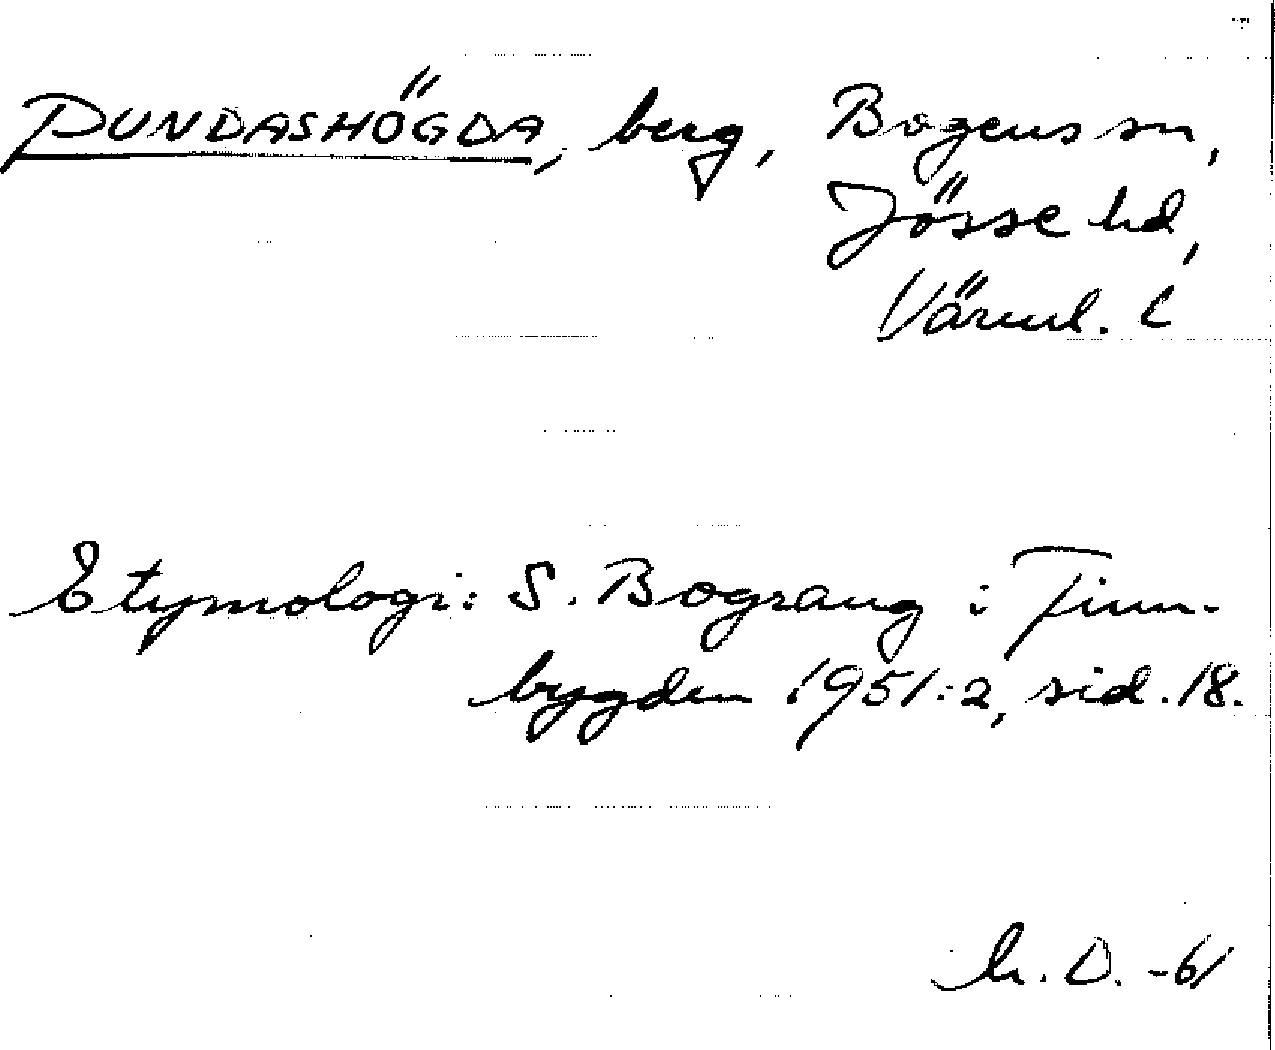 PUNDASHÖGDA, berg, Bogens sn,
Jösse hd,
Värml. l
Etymologi: S. Bograng i Finn-
bygden 1951:2, sid. 18.
h. D. -61